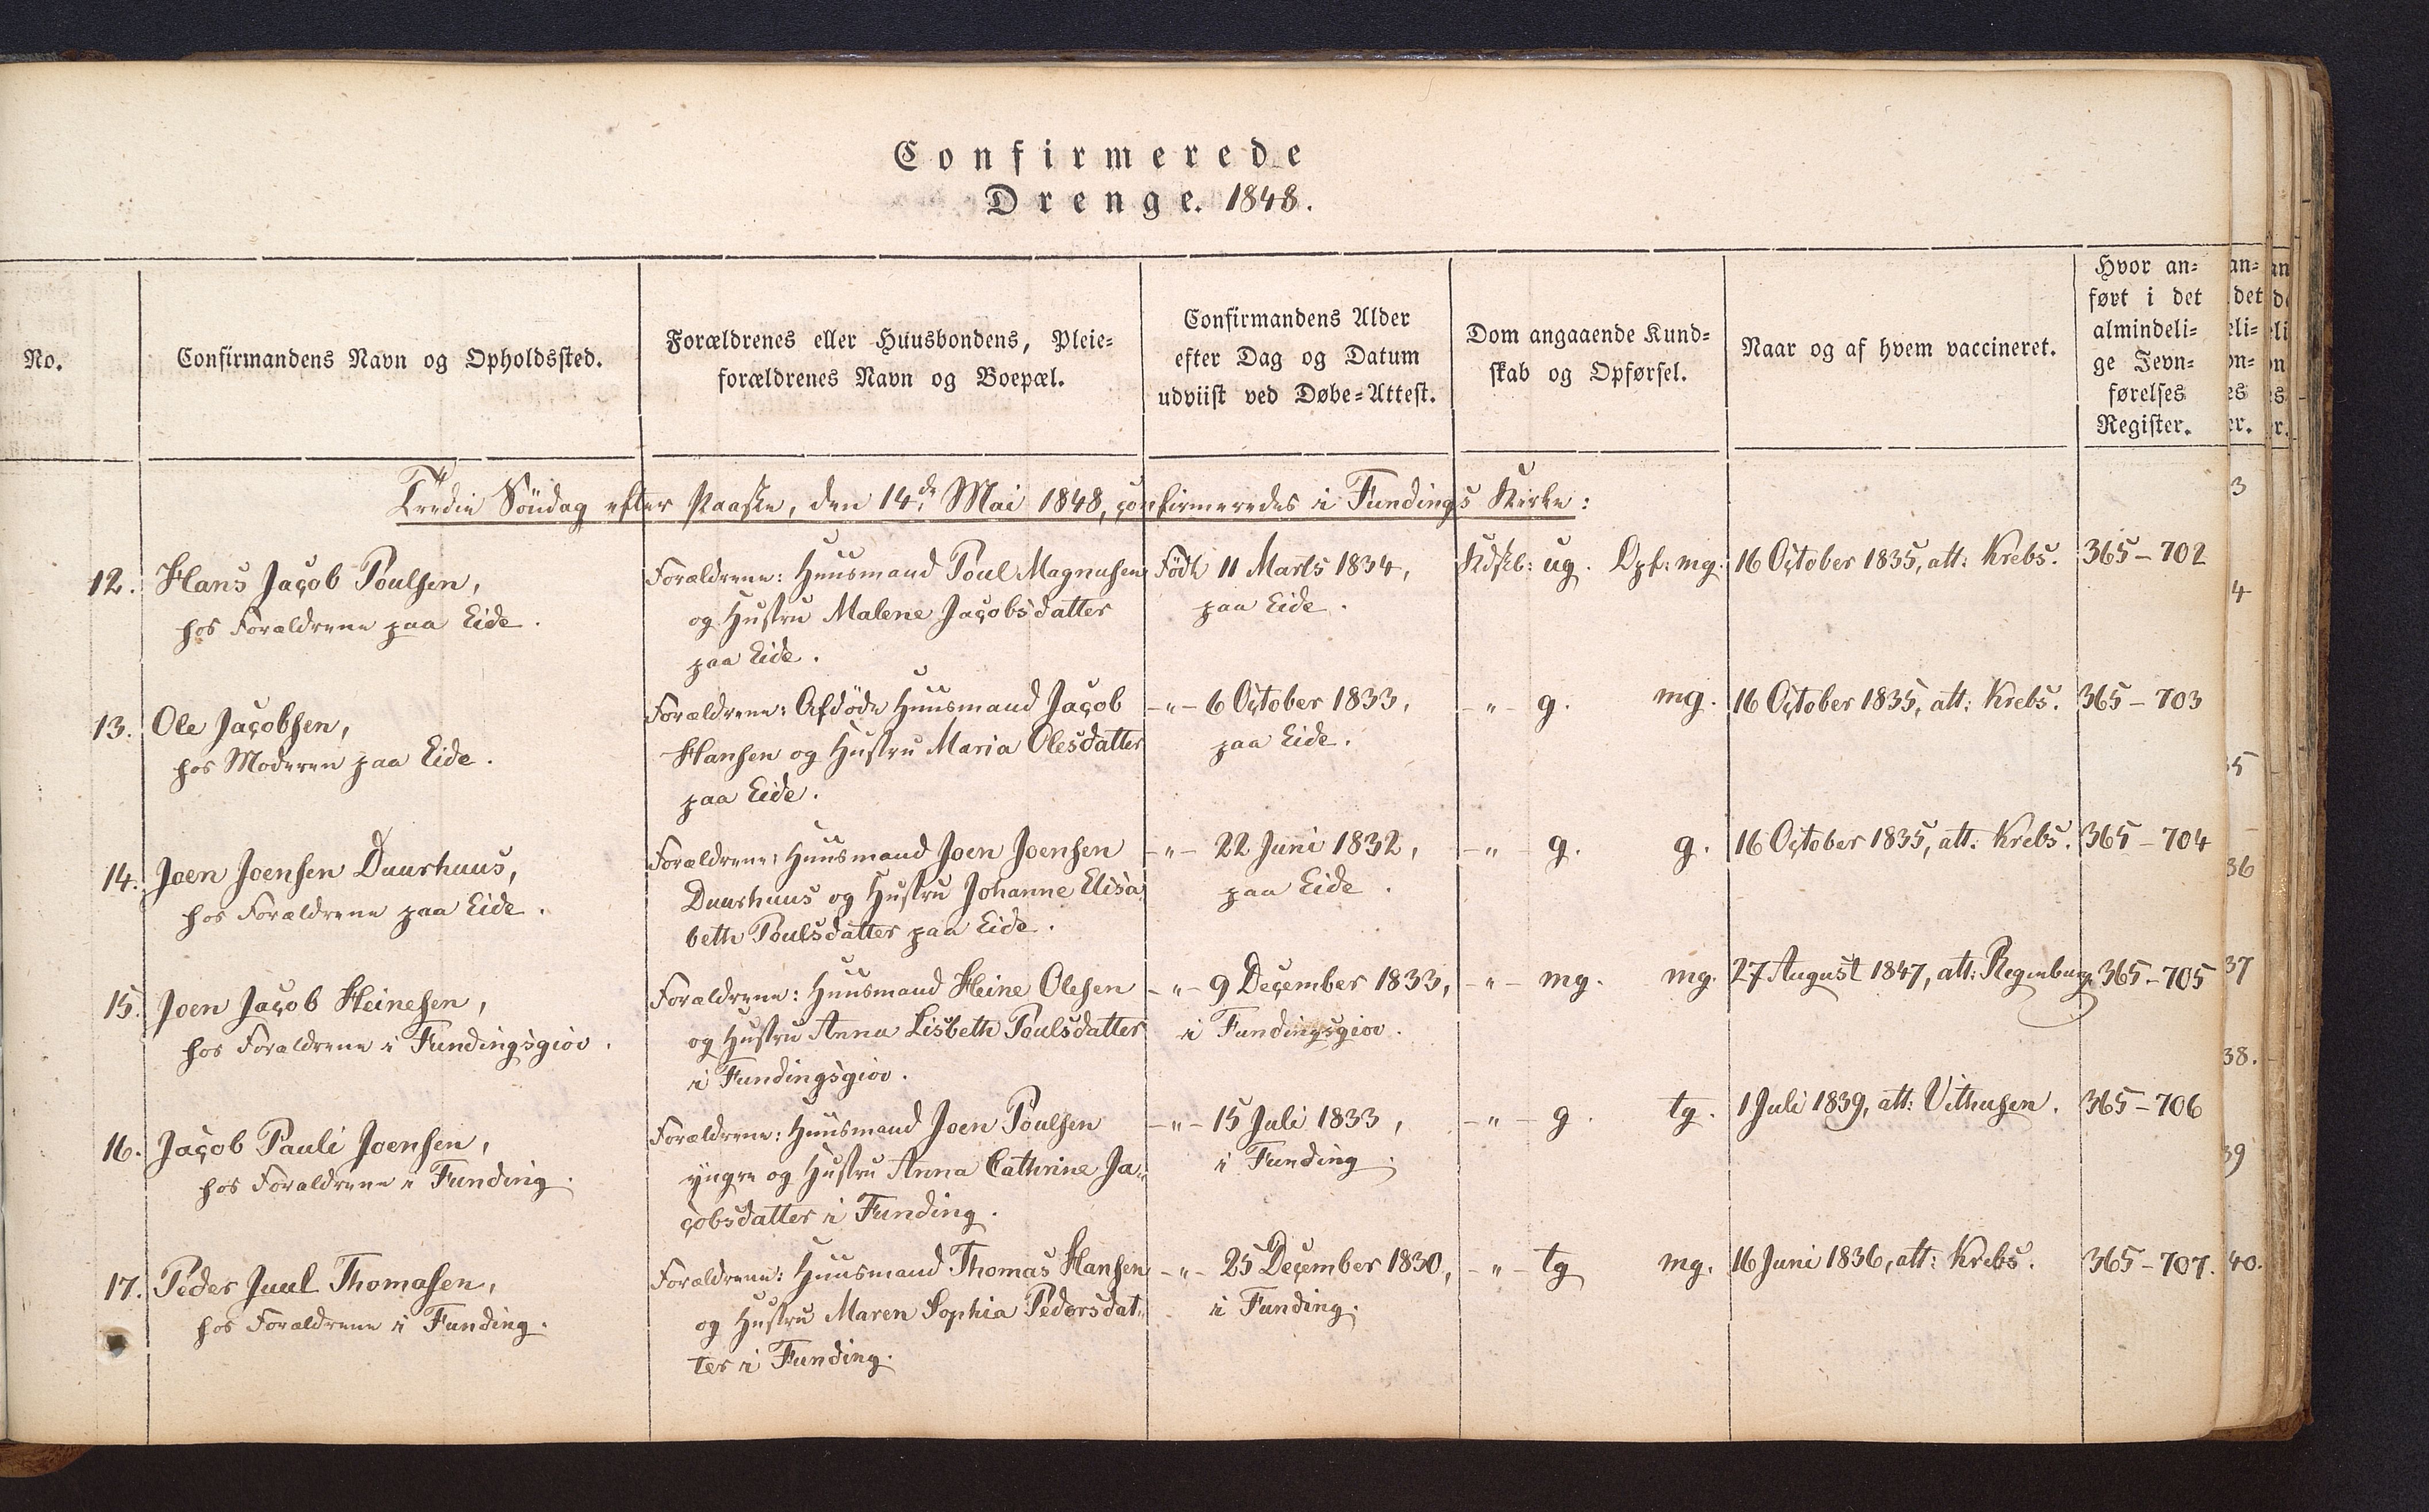 Confirmerede
Drenge. 1848.
No.
Confirmandens Navn og Opholdssted.
Forældrenes eller Huusbondens, Pleie=
forældrenes Navn og Boepæl.
Confirmandens Alder
efter Dag og Datum
udviist ved Døbe=Attest.
Dom angaaende Kund=
skab og Opførsel.
Naar og af hvem vaccineret.
Hvor an=
ført i det
almindeli=
ge Jevn=
førelses
Register.
Tredie Söndag efter Paaske, den 14de Mai 1848, confirmeredes i Fundings Kirke:
12.
Hans Jacob Poulsen,
hos Forældrene paa Eide.
Forældrene: Huusmand Poul Magnusen
og Hustru Malene Jacobsdatter
paa Eide.
Födt 11 Marts 1834,
paa Eide.
Kdskb: ug. Opf: mg.
16 October 1835, att: Krebs.
365-702
13.
Ole Jacobsen,
hos Moderen paa Eide.
Forældrene: Afdöde Huusmand Jacob
Hansen og Hustru Maria Olesdatter
paa Eide.
-"- 6 October 1833,
paa Eide.
-"- g. mg.
16 October 1835, att: Krebs.
365-703
14.
Joen Joensen Duurhuus,
hos Forældrene paa Eide.
Forældrene: Huusmand Joen Joensen
Duurhuus og Hustru Johanne Elisa=
beth Poulsdatter paa Eide.
-"- 22 Juni 1832,
paa Eide.
-"- g. g.
16 October 1835, att: Krebs.
365-704
15.
Joen Jacob Heinesen,
hos Forældrene i Fundingsgiov.
Forældrene: Huusmand Heine Olesen
og Hustru Anna Lisbeth Poulsdatter
i Fundingsgiov.
-"- 9 December 1833,
i Fundingsgiov.
-"- mg. mg.
27 August 1847, att: Regenburg.
365-705
16.
Jacob Pauli Joensen,
hos Forældrene i Funding.
Forældrene: Huusmand Joen Poulsen
yngre og Hustru Anna Cathrine Ja=
cobsdatter i Funding.
-"- 15 Juli 1833,
i Funding.
-"- g. tg.
1 Juli 1839, att: Vithusen.
365-706
17.
Peder Juul Thomasen,
hos Forældrene i Funding.
Forældrene: Huusmand Thomas Hansen
og Hustru Maren Sophia Pedersdat=
ter i Funding.
-"- 25 December 1830,
i Funding.
-"- tg mg.
16 Juni 1836, att: Krebs.
365-707.